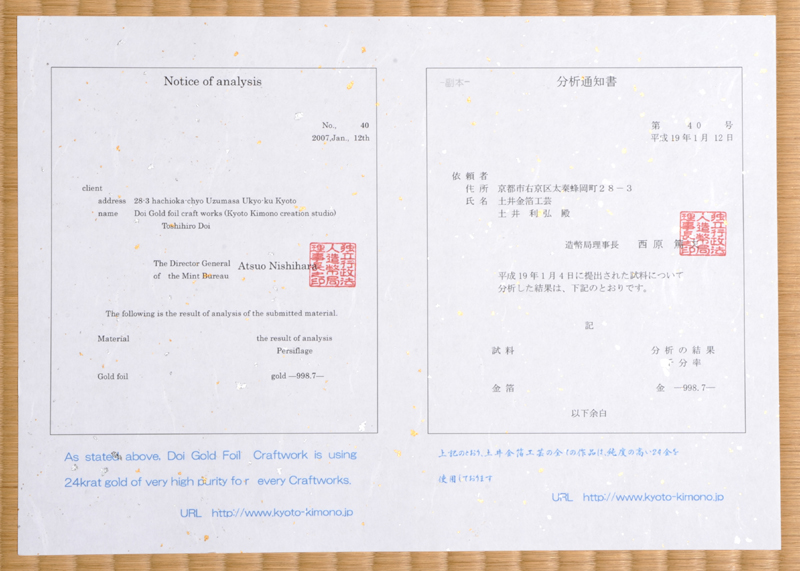 Notice of analysis
No., 40
2007.Jan., 12th
client
address 28-3 hachioka-chyo Uzumasa Ukyo-ku Kyoto
name Doi Gold foil craft works (Kyoto Kimono creation studio)
Toshihiro Doi
The Director General
of the Mint Bureau Atsuo Nishihara
独立行政法
人造幣局
理事長之印
The following is the result of analysis of the submitted material.
Material the result of analysis
Persiflage
Gold foil gold —998.7—
As stated above, Doi Gold Foil Craftwork is using
24krat gold of very high purity for every Craftworks.
URL http://www.kyoto-kimono.jp
-副本-
分析通知書
第 40 号
平成19年1月12日
依頼者
住所 京都市右京区太秦蜂岡町28-3
氏名 土井金箔工芸
土井 利弘 殿
造幣局理事長 西原 篤
独立行政法
人造幣局
理事長之印
平成19年1月4日に提出された試料について
分析した結果は、下記のとおりです。
記
試料 分析の結果
千分率
金箔 金 —998.7—
以下余白
上記のとおり、土井金箔工芸の全ての作品は、純度の高い24金を
使用しております
URL http://www.kyoto-kimono.jp